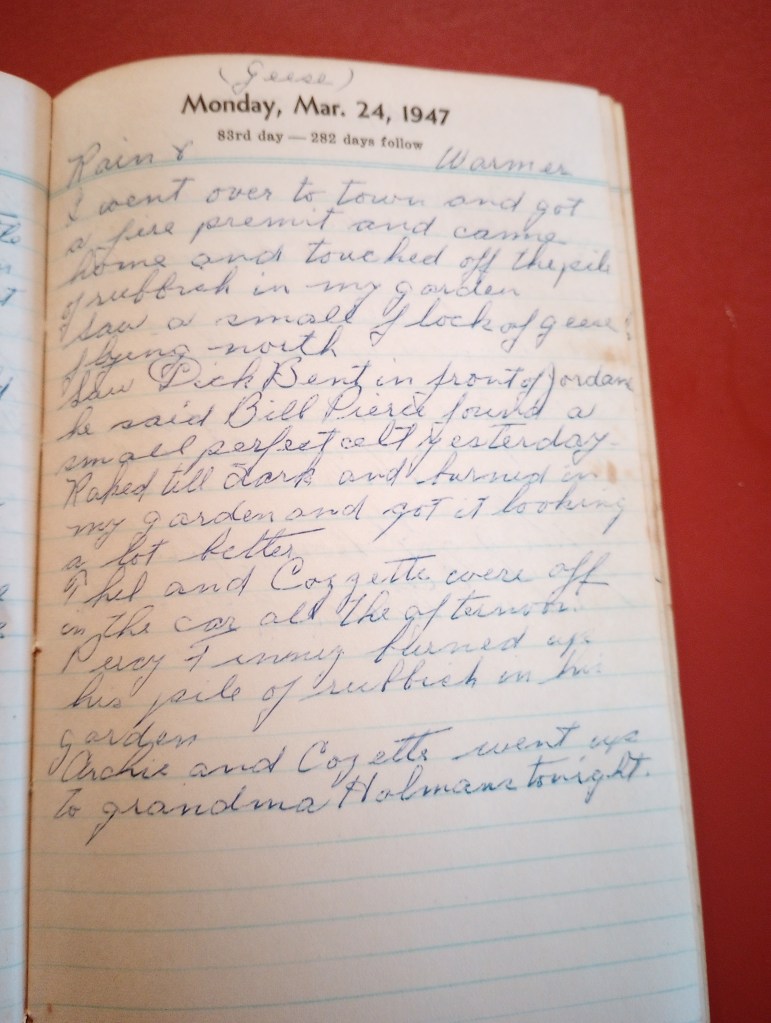 (Geese)
Monday, Mar. 24, 1947
83rd day — 282 days follow
Rain & Warmer
I went over to town and got
a fire premit and came
home and touched off the pile
of rubbish in my garden
Saw a small flock of geese
flying north
Saw Dick Bent in front of Jordans
he said Bill Pierce found a
small perfect celt yesterday-
Raked till dark and burned in
my garden and got it looking
a lot better
Thel and Cozzette were off
in the car all the afternoon.
Percy Finney burned up
his pile of rubbish in his
garden
Archie and Cozette went up
to grandma Holmans tonight.